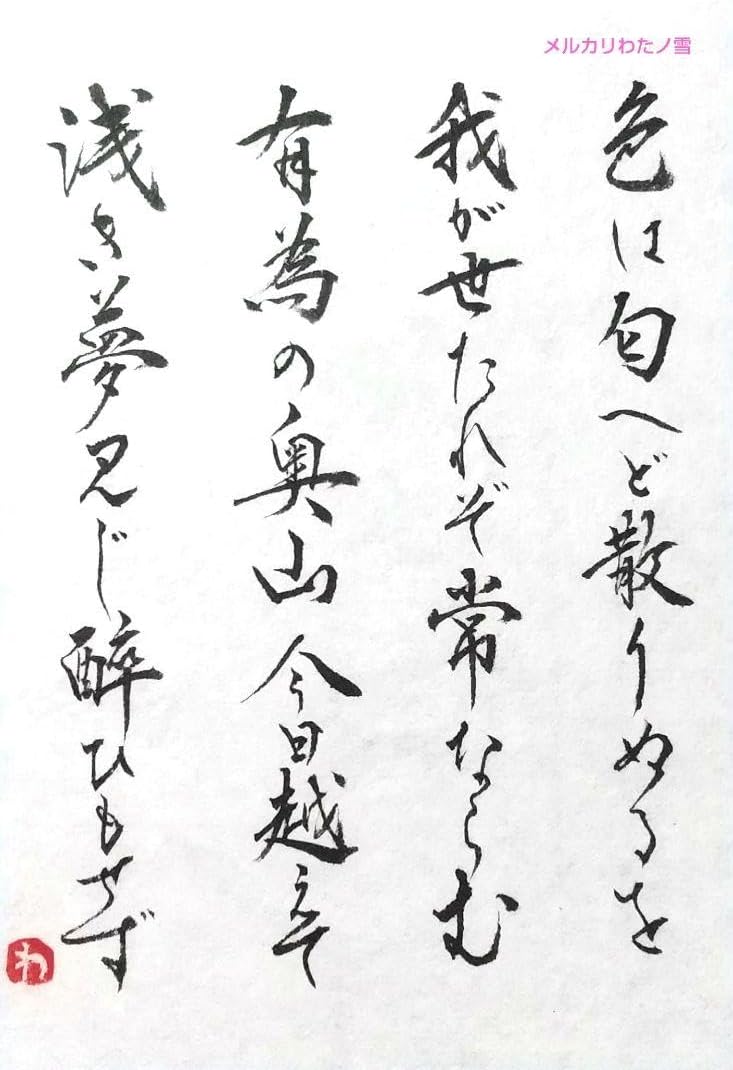 メルカリわたノ雪
色は匂へど散りぬるを
我が世たれぞ常ならむ
有為の奥山今日越えて
浅き夢見じ酔ひもせず
わ